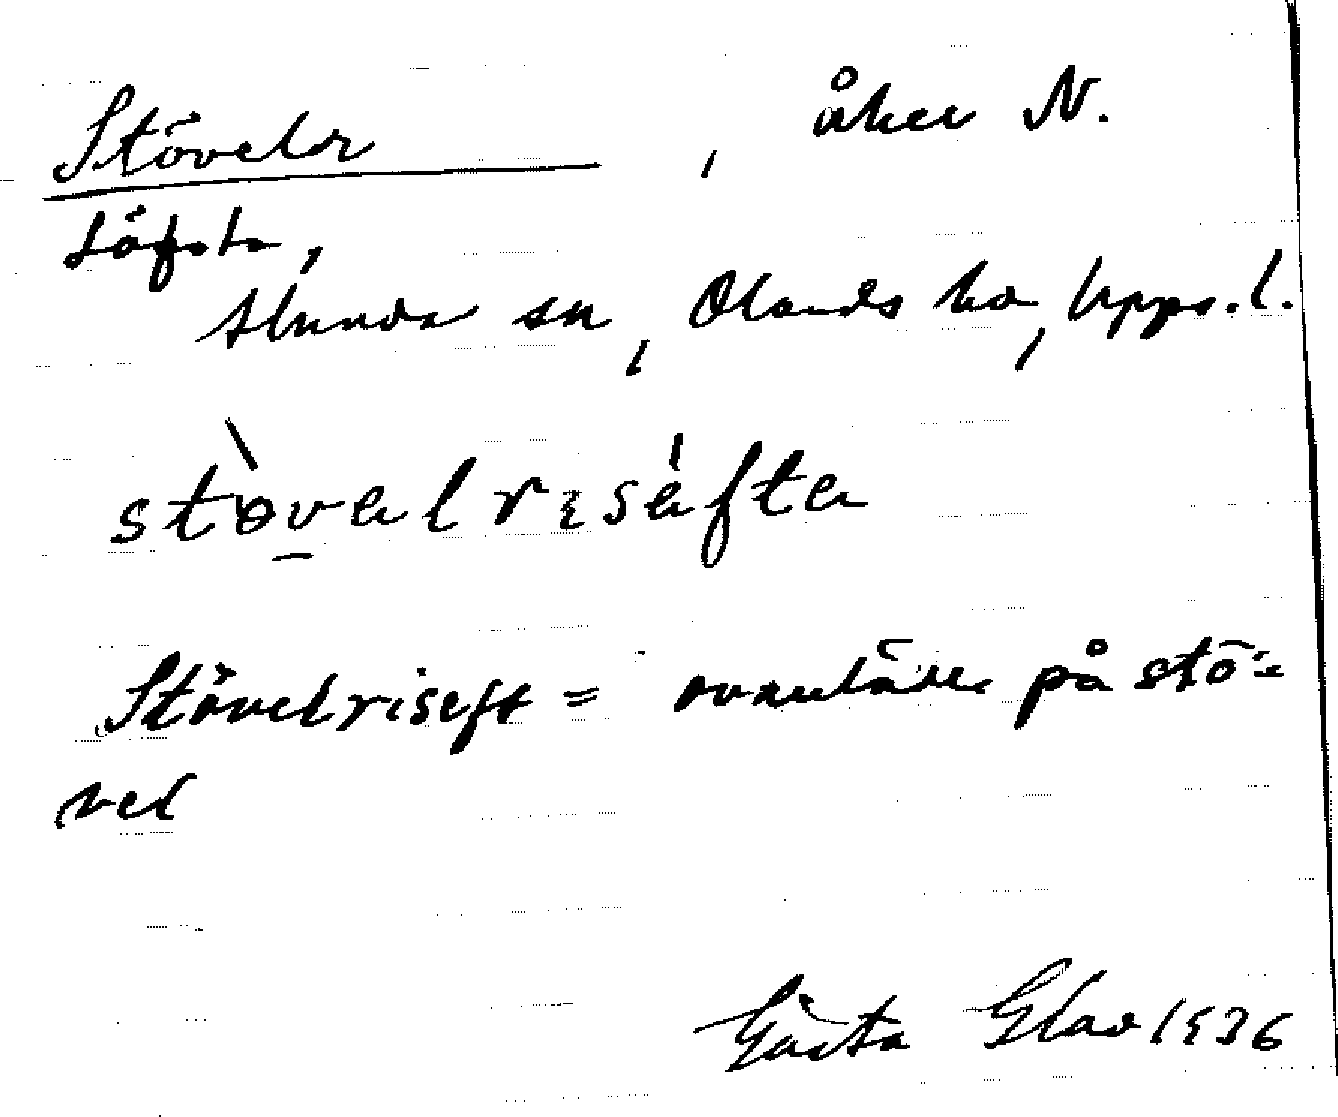 Stövelr , åker N.
Löfsta,
Alunda sn, Olands hd, Upps. l.
stövalrisäfta
Stövelriseft = ovanläder på stö-
vel
Gösta Glad 1936